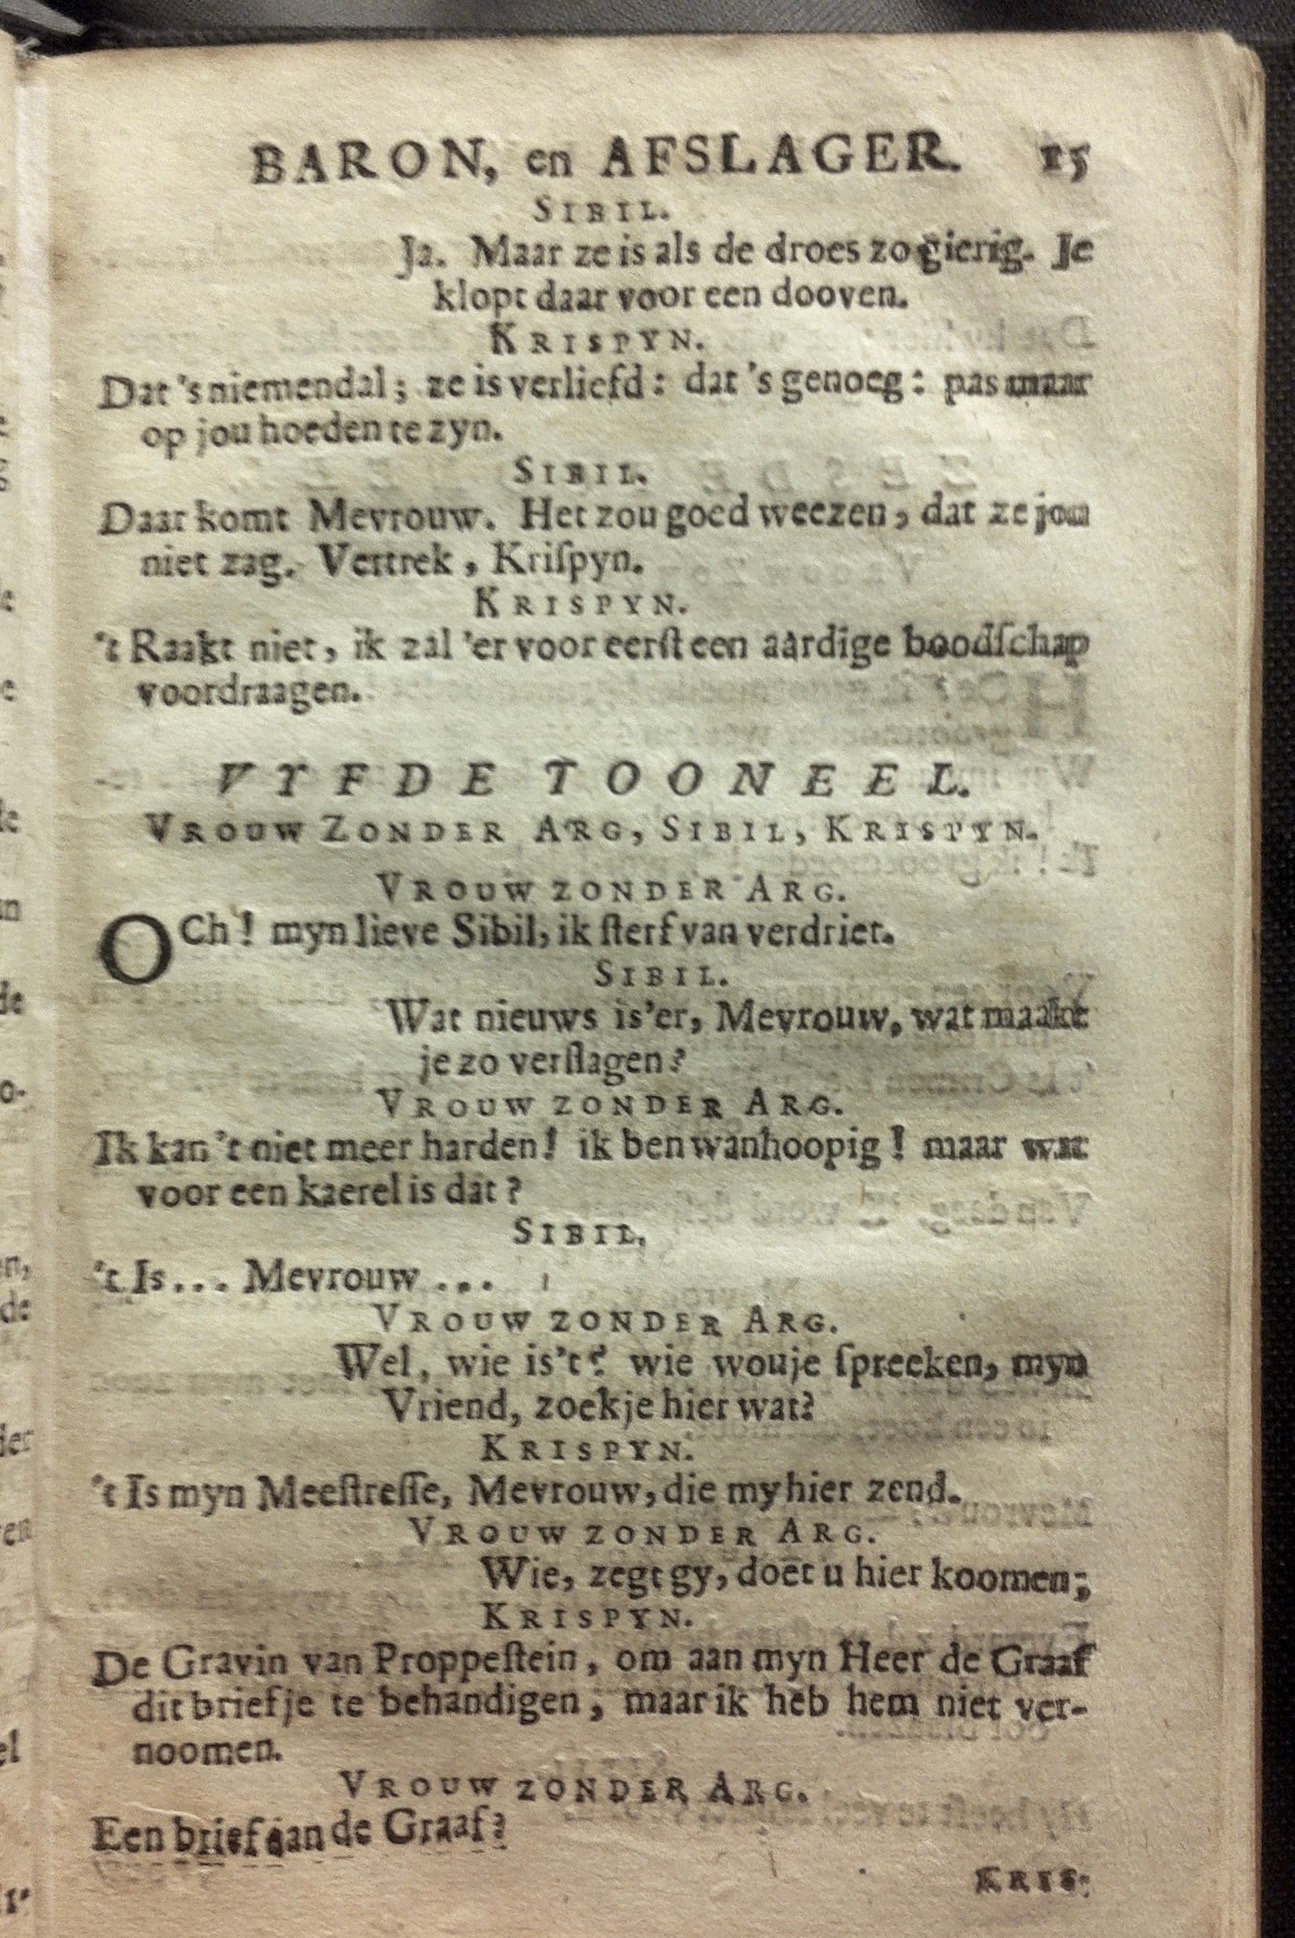 BARON, en AFSLAGER. 15
SIBIL.
Ja. Maar ze is als de droes zo gierig. Je
klopt daar voor een dooven.
KRISPYN.
Dat 's niemendal; ze is verliefd: dat 's genoeg: pas maar
op jou hoeden te zyn.
SIBIL.
Daar komt Mevrouw. Het zou goed weezen, dat ze jou
niet zag. Vertrek, Kriſpyn.
KRISPYN.
't Raakt niet, ik zal 'er voor eerſt een aardige boodſchap
voordraagen.
VYFDE TOONEEL.
VROUW ZONDER ARG, SIBIL, KRISPYN.
VROUW ZONDER ARG.
OCh! myn lieve Sibil, ik ſterf van verdriet.
SIBIL.
Wat nieuws is'er, Mevrouw, wat maakt
je zo verſlagen?
VROUW ZONDER ARG.
Ik kan 't niet meer harden! ik ben wanhoopig! maar wat
voor een kaerel is dat?
SIBIL.
't Is... Mevrouw...
VROUW ZONDER ARG.
Wel, wie is't? wie wouje ſpreeken, myn
Vriend, zoekje hier wat?
KRISPYN.
't Is myn Meeſtreſſe, Mevrouw, die my hier zend.
VROUW ZONDER ARG.
Wie, zegt gy, doet u hier koomen;
KRISPYN.
De Gravin van Proppeſtein, om aan myn Heer de Graaf
dit briefje te behandigen, maar ik heb hem niet ver-
noomen.
VROUW ZONDER ARG.
Een brief aan de Graaf?
KRIS-